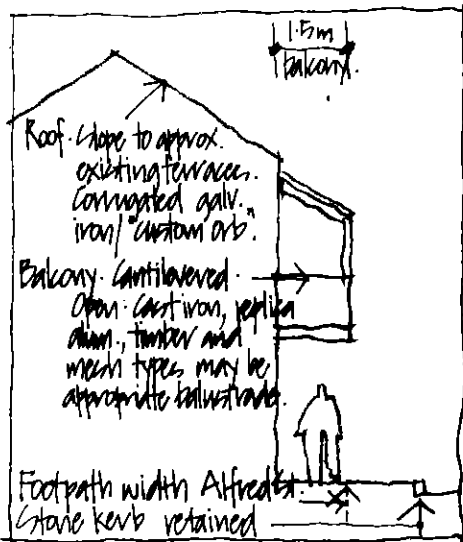 1.5m
balcony.
Roof. Slope to approx.
existing terraces.
Corrugated galv.
iron/"custom orb".
Balcony. Cantilevered.
Open. Cast iron, replica
alum., timber and
mesh types may be
appropriate balustrades.
Footpath width Alfred St.
Stone kerb retained